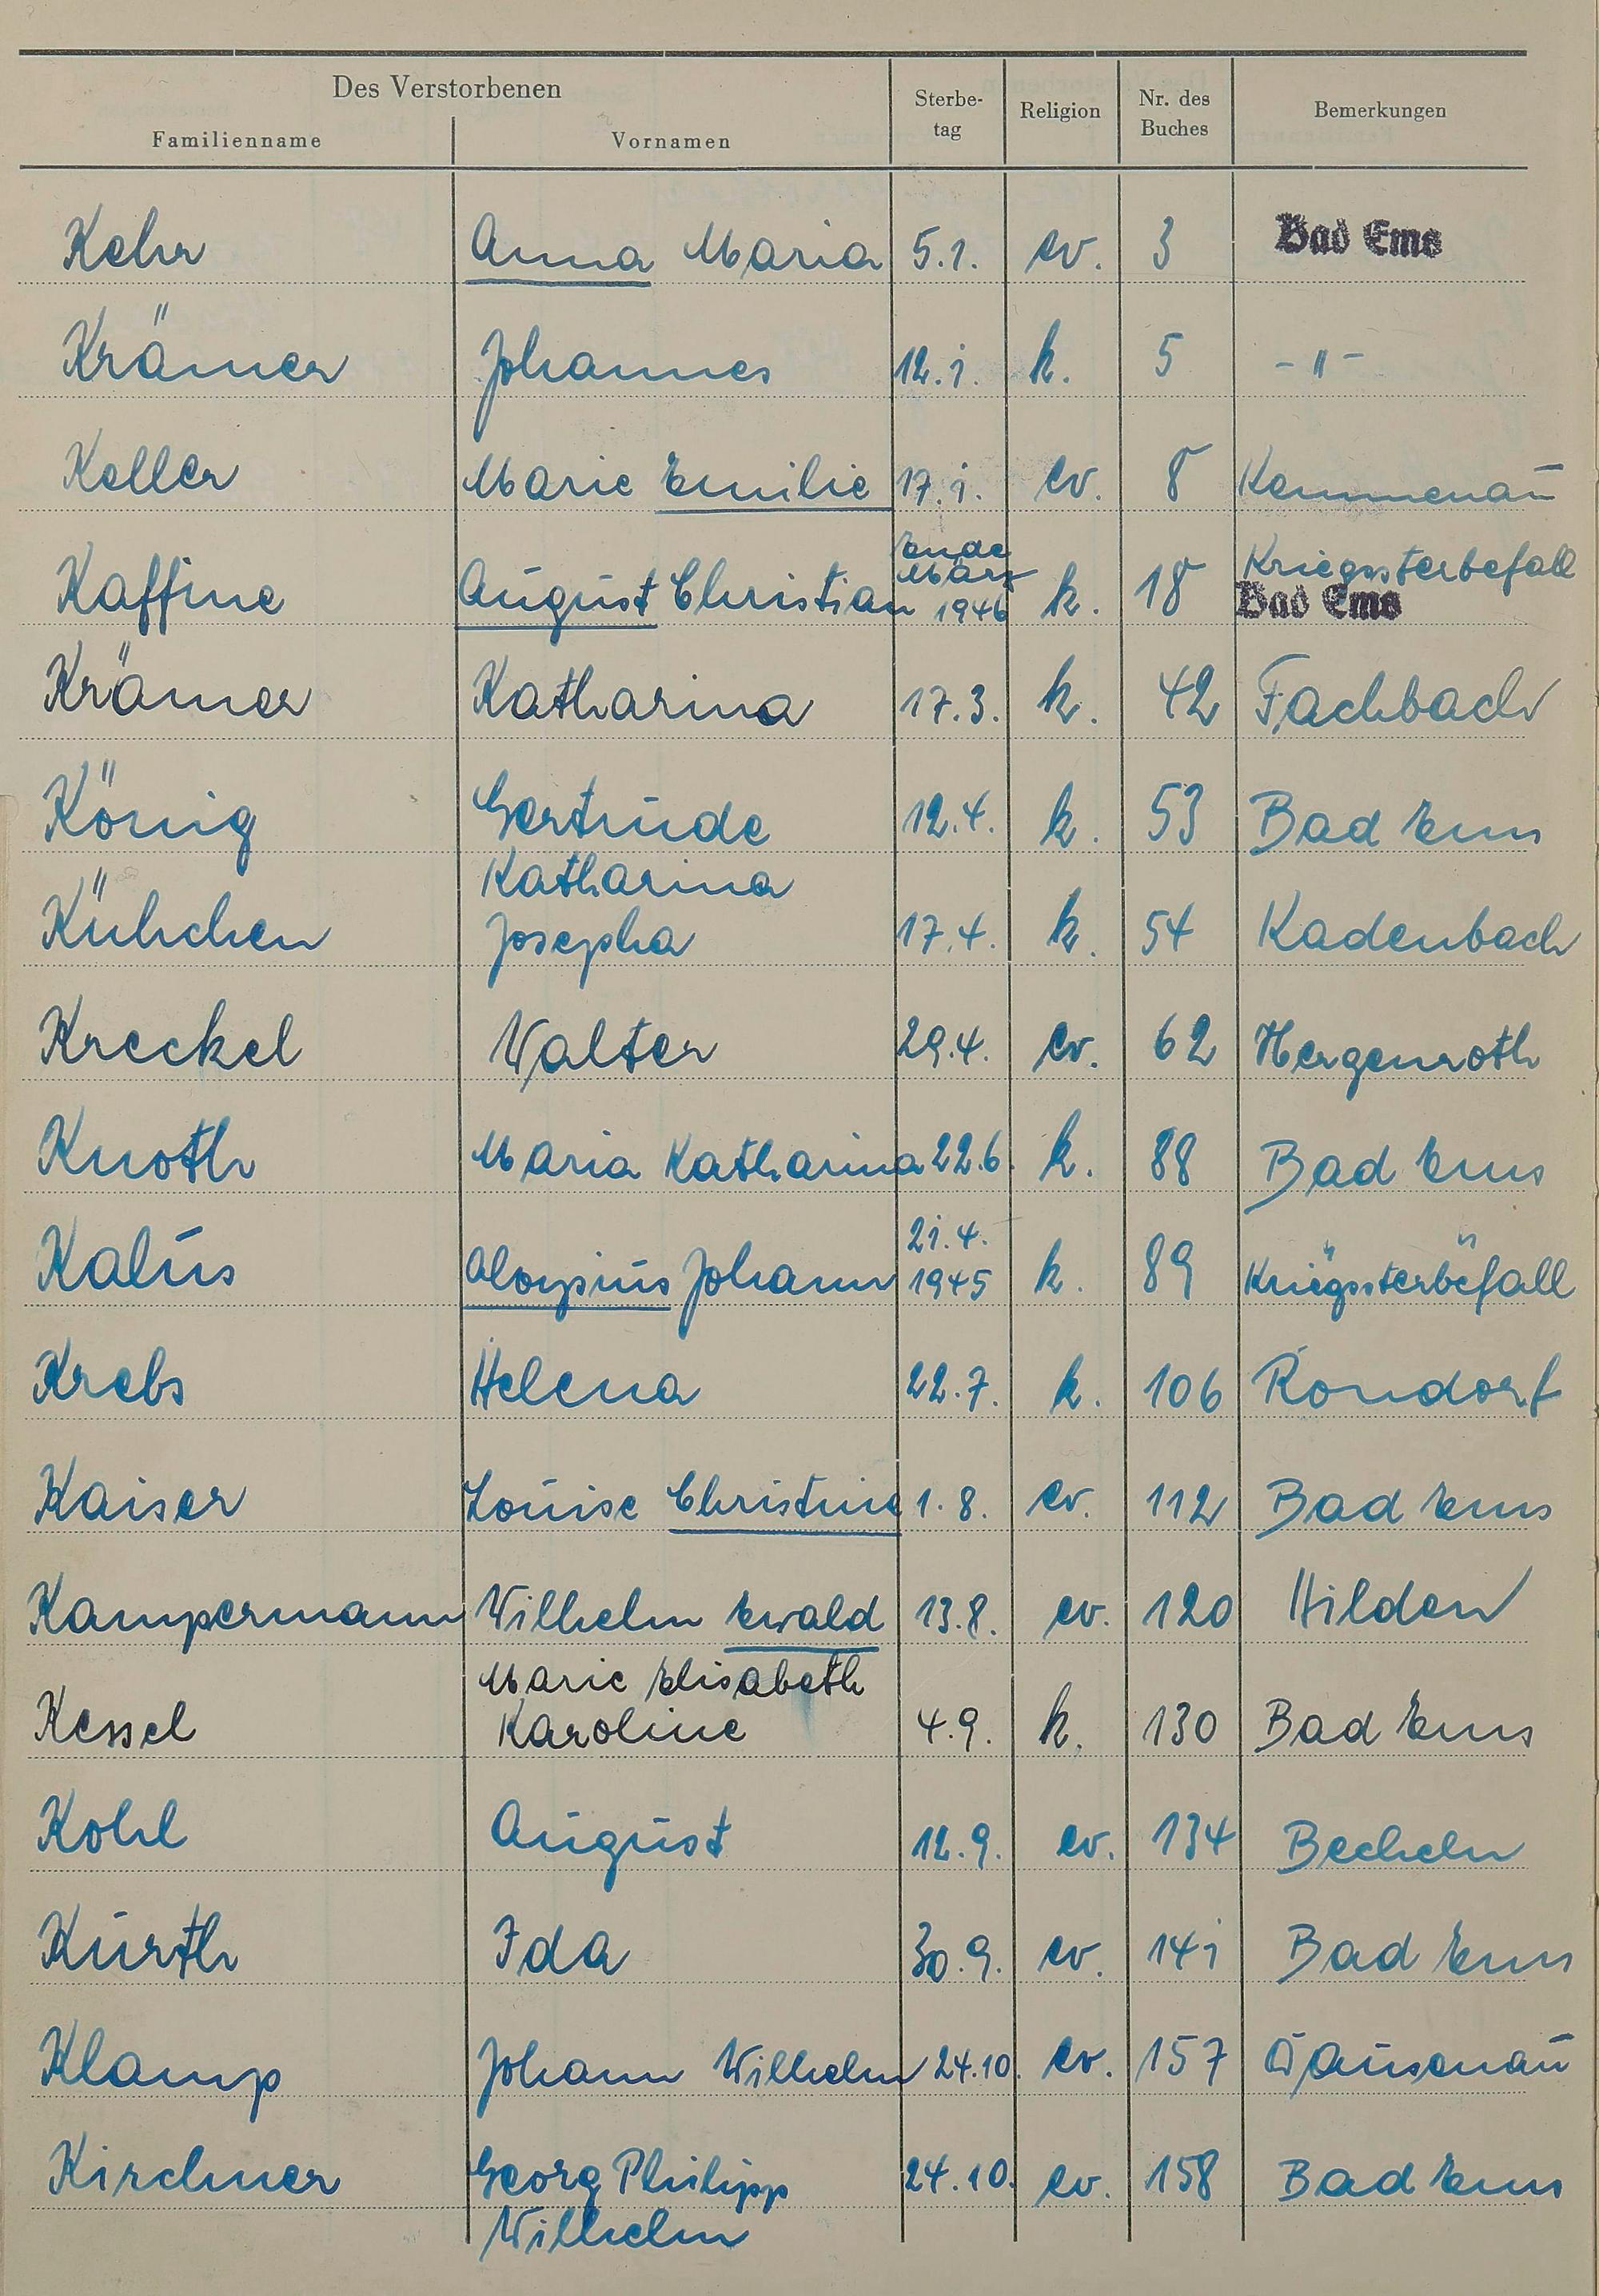 Des Verstorbenen
Familienname Vornamen Sterbe-tag Religion Nr. des Buches Bemerkungen
Kehr Anna Maria 5.1. ev. 3 Bad Ems
Krämer Johannes 12.1. k. 5 -"-
Keller Marie Emilie 17.1. ev. 8 Kemmenau
Ende
März Kriegssterbefall
Kaffine August Christian 1946 k. 18 Bad Ems
Krämer Katharina 17.3. k. 42 Fachbach
König Gertrude 12.4. k. 53 Bad Ems
Katharina
Kühchen Josepha 17.4. k. 54 Kadenbach
Kreckel Walter 29.4. ev. 62 Hergenroth
Knoth Maria Katharina 22.6. k. 88 Bad Ems
21.4. " "
Kalus Aloysius Johann 1945 k. 89 Kriegssterbefall
Krebs Helena 22.7. k. 106 Rondorf
Kaiser Louise Christine 1.8. ev. 112 Bad Ems
Kampermann Wilhelm Ewald 13.8. ev. 120 Hilden
Marie Elisabeth
Kessel Karoline 4.9. k. 130 Bad Ems
Kohl August 12.9. ev. 134 Becheln
Kurth Ida 30.9. ev. 141 Bad Ems
Klamp Johann Wilhelm 24.10. ev. 157 Dausenau
Kirchner Georg Philipp 24.10. ev. 158 Bad Ems
Wilhelm